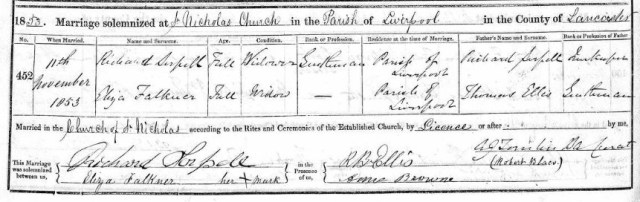 1853. Marriage solemnized at St Nicholas Church in the Parish of Liverpool in the County of Lancaster
No. When Married. Name and Surname. Age. Condition. Rank or Profession. Residence at the time of Marriage. Father's Name and Surname. Rank or Profession of Father.
452 11th November 1853 Richard Serpell Full Widower Gentleman Parish of Liverpool Richard Serpell
Eliza Falkner Full Widow — Parish of Liverpool Thomas Ellis Gentleman
Married in the Church of St Nicholas according to the Rites and Ceremonies of the Established Church, by Licence or after by me,
This Marriage was solemnized between us, Richard Serpell in the Presence of us, R B Ellis
Eliza Falkner her + mark Browne